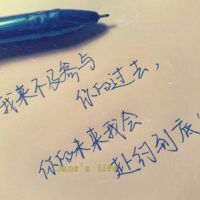 我来不及参与
你的过去，
你的未来我会
赴约到底！